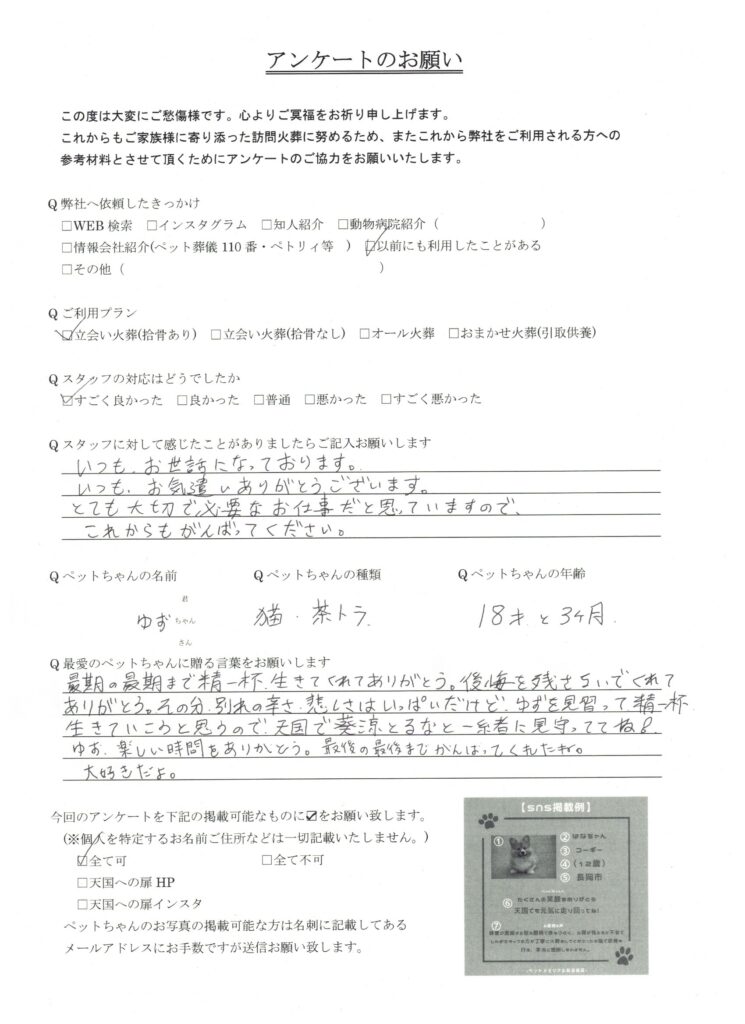 アンケートのお願い
この度は大変にご愁傷様です。心よりご冥福をお祈り申し上げます。
これからもご家族様に寄り添った訪問火葬に努めるため、またこれから弊社をご利用される方への
参考材料とさせて頂くためにアンケートのご協力をお願いいたします。
Q 弊社へ依頼したきっかけ
□WEB 検索 □インスタグラム □知人紹介 □動物病院紹介（ ）
□情報会社紹介(ペット葬儀 110 番・ペトリィ等 ） ☑以前にも利用したことがある
□その他（ ）
Q ご利用プラン
☑立会い火葬(拾骨あり) □立会い火葬(拾骨なし) □オール火葬 □おまかせ火葬(引取供養)
Q スタッフの対応はどうでしたか
☑すごく良かった □良かった □普通 □悪かった □すごく悪かった
Q スタッフに対して感じたことがありましたらご記入お願いします
いつも、お世話になっております。
いつも、お気遣いありがとうございます。
とても大切で必要なお仕事だと思っていますので、
これからもがんばってください。
Q ペットちゃんの名前 Q ペットちゃんの種類 Q ペットちゃんの年齢
君
ゆず ちゃん 猫・茶トラ 18才と3ヶ月
さん
Q 最愛のペットちゃんに贈る言葉をお願いします
最期の最期まで精一杯、生きてくれてありがとう。後悔を残さないでくれて
ありがとう。その分、別れの辛さ、悲しさはいっぱいだけど、ゆずを見習って精一杯
生きていこうと思うので、天国で葵涼とるなと一緒に見守っててね
ゆず、楽しい時間をありがとう。最後の最後までがんばってくれたね。
大好きだよ。
今回のアンケートを下記の掲載可能なものに☑をお願い致します。
(※個人を特定するお名前ご住所などは一切記載いたしません。)
☑全て可 □全て不可
□天国への扉 HP
□天国への扉インスタ
ペットちゃんのお写真の掲載可能な方は名刺に記載してある
メールアドレスにお手数ですが送信お願い致します。
【sns掲載例】
① ② はなちゃん
③ コーギー
④ (12歳)
⑤ 長岡市
⑥ たくさんの笑顔をありがとう
天国でも元気に走り回ってね！
⑦